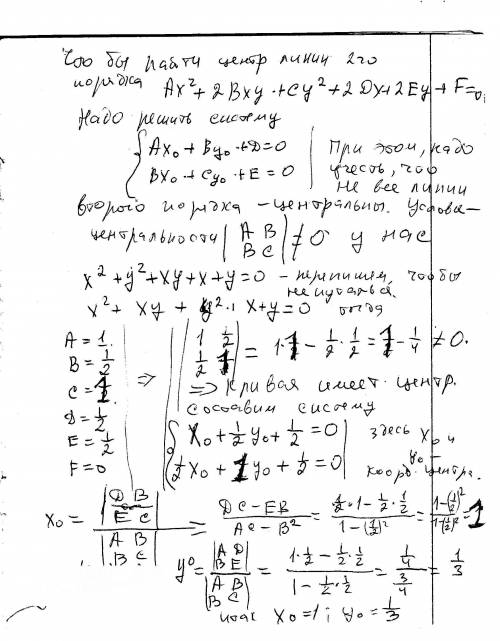 Что бы найти центр линии 2го
порядка Ax² + 2Bxy + Cy² + 2Dx + 2Ey + F = 0;
Надо решить систему
{ Ax₀ + By₀ + D = 0
Bx₀ + Cy₀ + E = 0 | При этом, надо
учесть, что
не все линии
второго порядка - центральны. Услови-
центральности |A B; B C| ≠ 0 у нас
x² + y² + xy + x + y = 0 - перепишем, чтобы
не путаться.
x² + xy + y² + x + y = 0 тогда
A = 1
B = 1/2
C = 1
D = 1/2
E = 1/2
F = 0
=> |1 1/2; 1/2 1| = 1·1 - 1/2·1/2 = 1 - 1/4 ≠ 0.
=> Кривая имеет центр.
составим систему
{ x₀ + 1/2 y₀ + 1/2 = 0
1/2 x₀ + 1 y₀ + 1/2 = 0 | здесь x₀ и
y₀ -
коорд. центра.
x₀ = |D B; E C| / |A B; B C| = (DC - EB)/(AC - B²) = (1/2·1 - 1/2·1/2)/(1 - (1/2)²) = (1 - (1/2)²)/(1 - (1/2)²) = 1
y₀ = |A D; B E| / |A B; B C| = (1·1/2 - 1/2·1/2)/(1 - 1/2·1/2) = (1/4)/(3/4) = 1/3
x₀ = 1; y₀ = 1/3